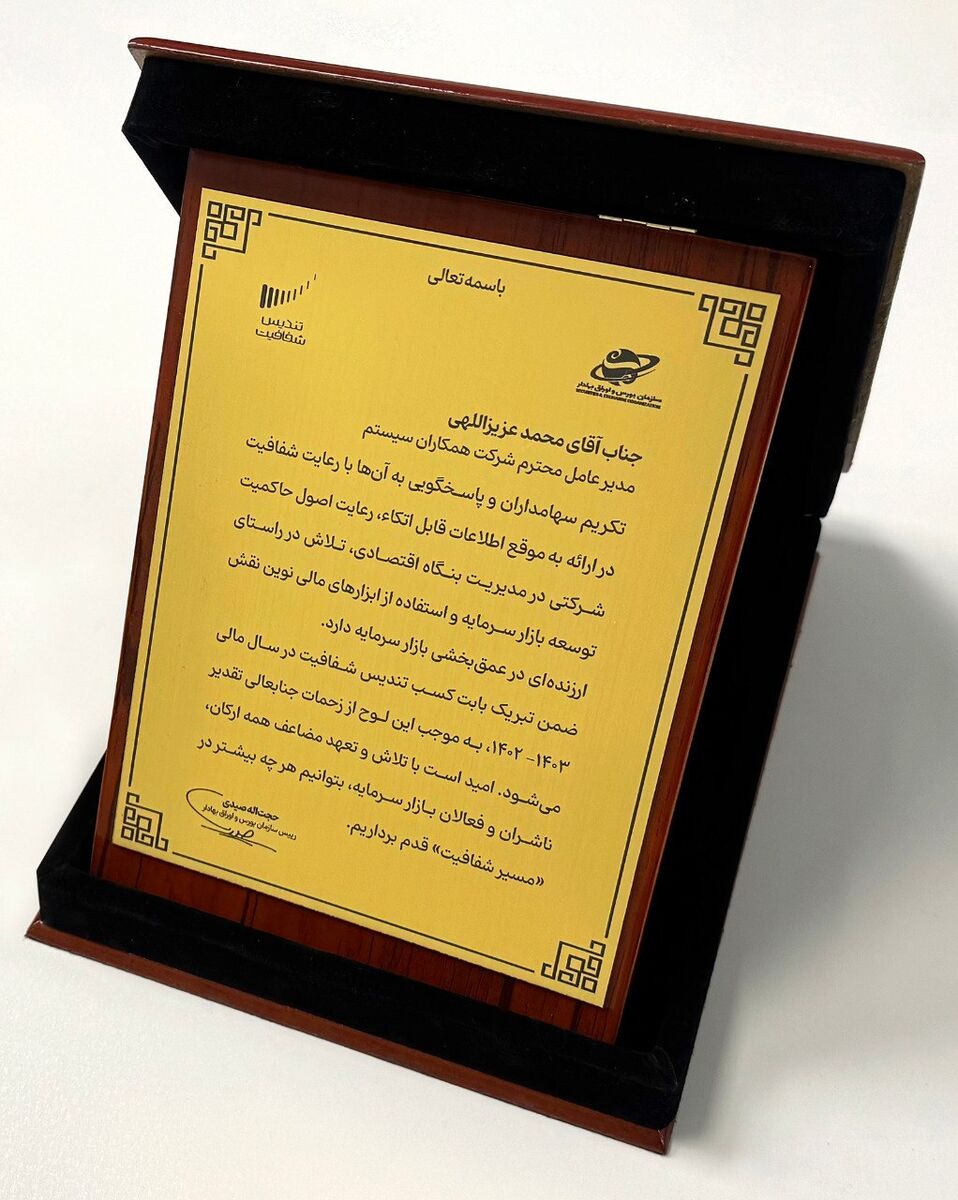 باسمه تعالی
تندیس
شفافیت
سازمان بورس و اوراق بهادار
SECURITIES & EXCHANGE ORGANIZATION
جناب آقای محمد عزیزاللهی
مدیر عامل محترم شرکت همکاران سیستم
تکریم سهامداران و پاسخگویی به آن‌ها با رعایت شفافیت
در ارائه به موقع اطلاعات قابل اتکاء، رعایت اصول حاکمیت
شرکتی در مدیریت بنگاه اقتصادی، تلاش در راستای
توسعه بازار سرمایه و استفاده از ابزارهای مالی نوین نقش
ارزنده‌ای در عمق‌بخشی بازار سرمایه دارد.
ضمن تبریک بابت کسب تندیس شفافیت در سال مالی
۱۴۰۳- ۱۴۰۲، به موجب این لوح از زحمات جنابعالی تقدیر
می‌شود. امید است با تلاش و تعهد مضاعف همه ارکان،
ناشران و فعالان بازار سرمایه، بتوانیم هر چه بیشتر در
«مسیر شفافیت» قدم برداریم.
حجت‌اله صیدی
رییس سازمان بورس و اوراق بهادار